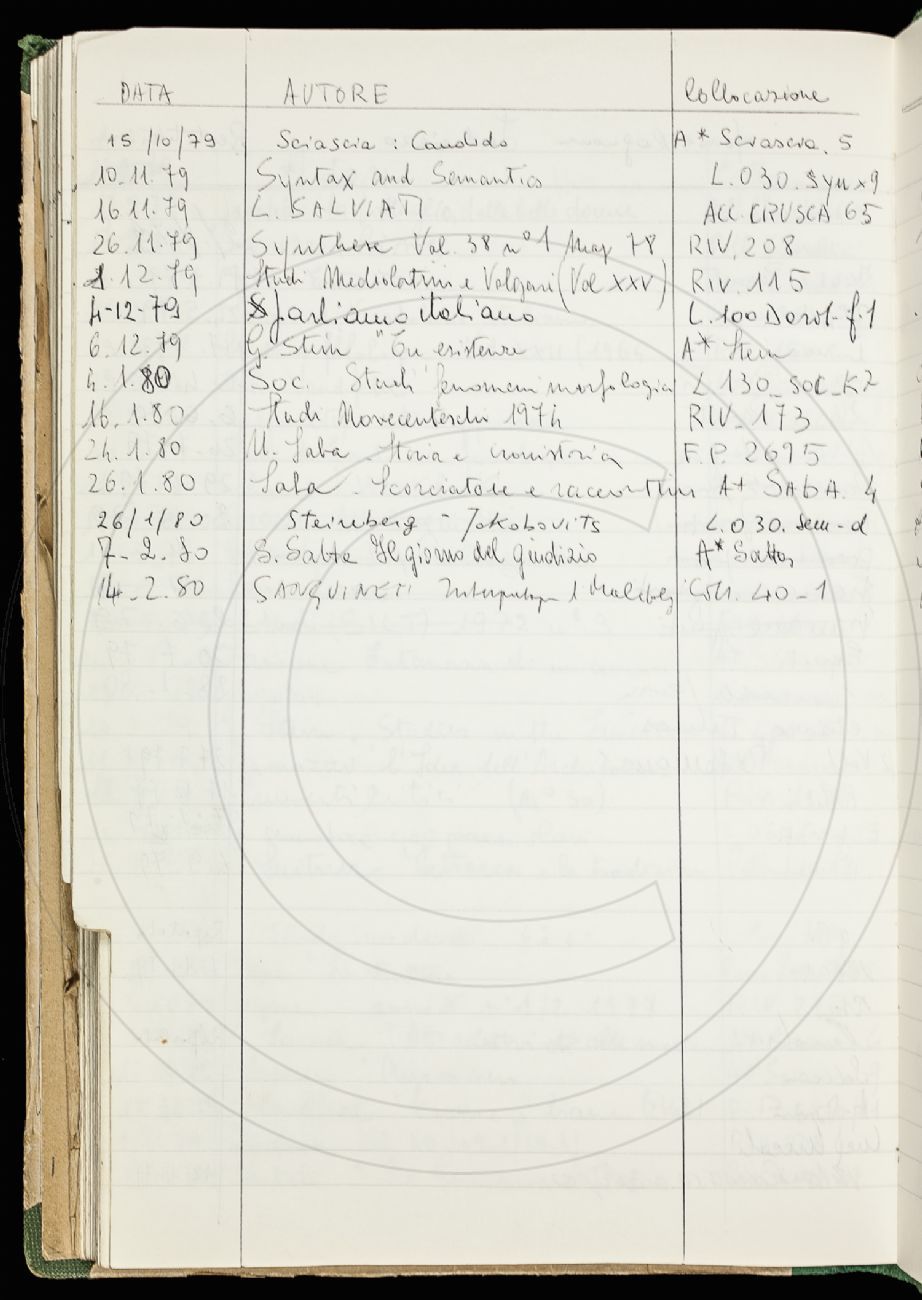 DATA AUTORE Collocazione
15/10/79 Sciascia : Candido A* Sciascia. 5
10.11.79 Syntax and Semantics L.030. Syn x9
16 11.79 L. SALVIATI ACC. CRUSCA 65
26.11.79 Synthese Vol. 38 n° 1 May 78 RIV. 208
1.12.79 Studi Mediolatini e Volgari (Vol XXV) RIV. 115
4-12-79 parliamo italiano L.100
6.12.79 G. Stein A* Stein
4.1.80 Soc. Studi fenomeni morfologici L 130_SOC_K2
16.1.80 Studi Novecenteschi 1974 RIV_173
24.1.80 U. Saba. Storia e cronistoria F.P. 2695
26.1.80 Saba. Scorciatoie e raccontini A* SABA. 4
26/1/80 Steinberg - Jakobovits L.030. sem-d
7-2.80 S. Satta Il giorno del giudizio A* Satta
14.2.80 SANGUINETI Coll. 40-1